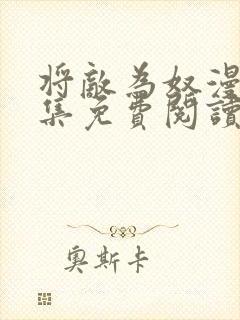 将敵為奴漫
集免費閱讀
奧斯卡